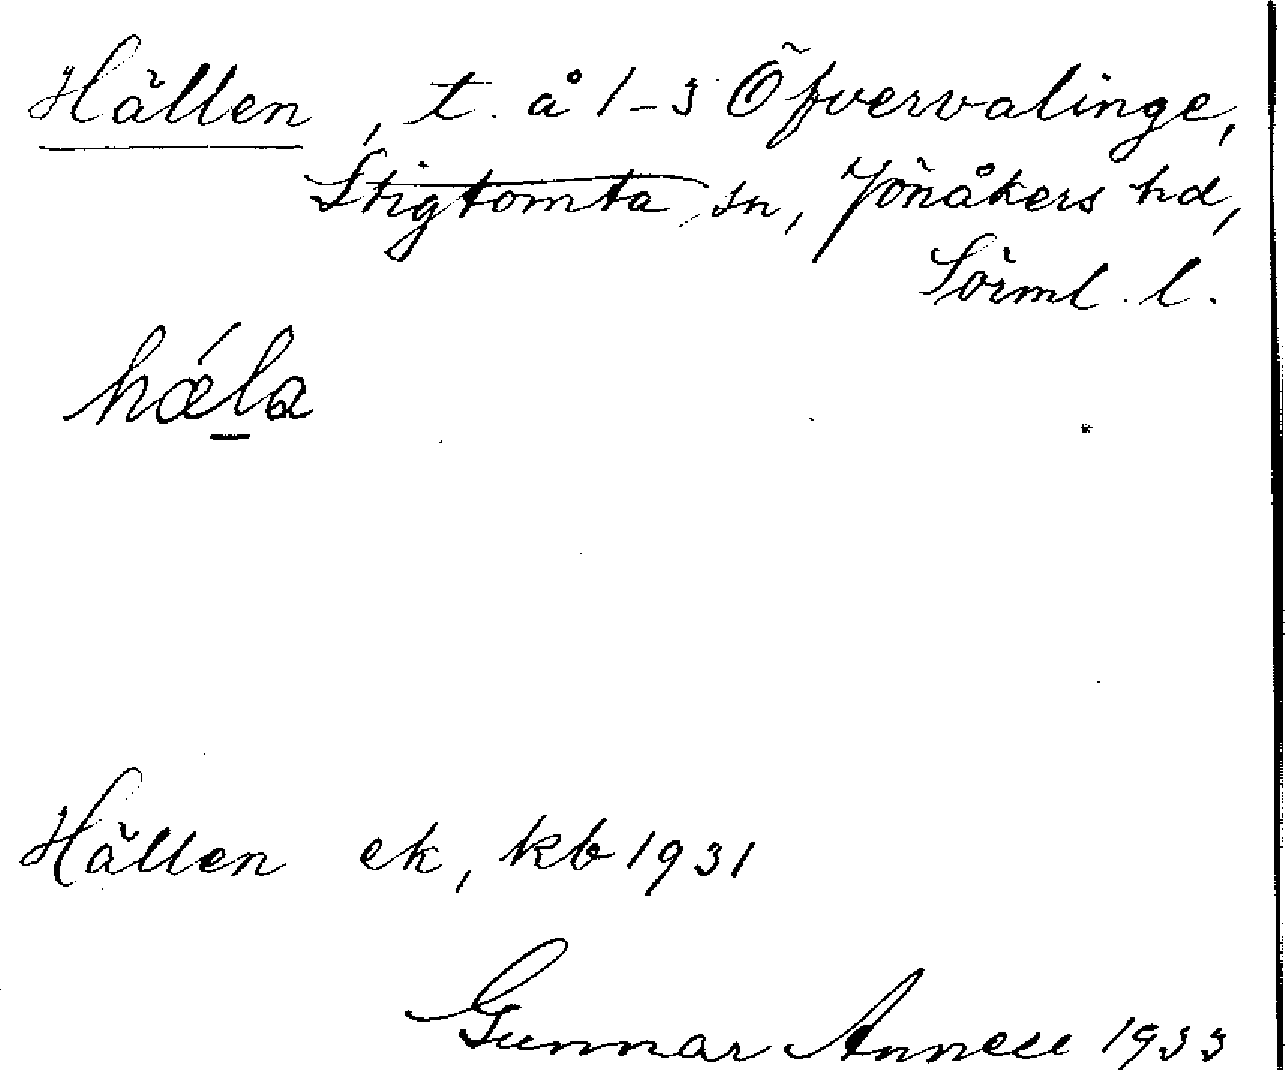 Hällen, t. å 1-3 Öfvervalinge,
Stigtomta sn, Jönåkers hd,
Sörml. l.
hǽla
Hällen ek, kb 1931
Gunnar Annell 1933